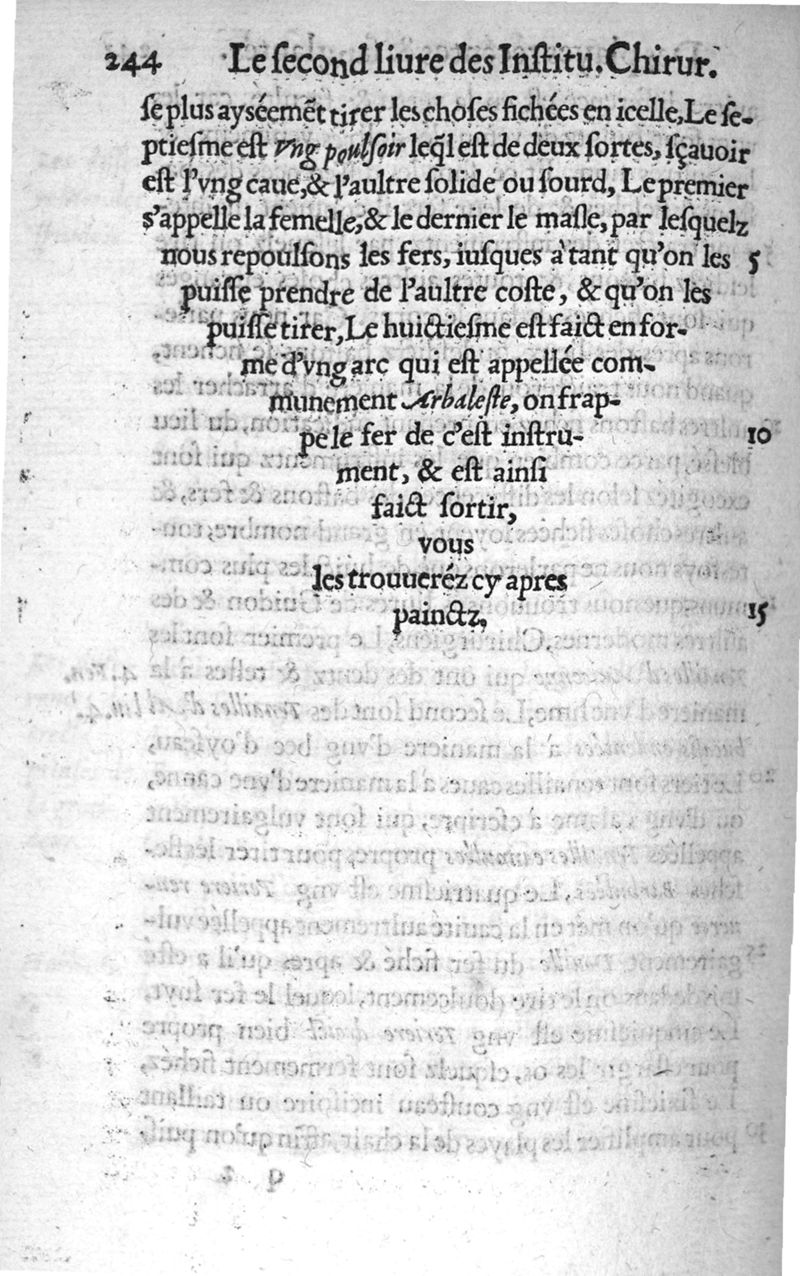 244 Le ſecond liure des Inſtitu. Chirur.
ſe plus ayséemẽt tirer les choſes fichées en icelle, Le ſe-
ptieſme eſt vng poulſoir leq̃l eſt de deux ſortes, ſçauoir
eſt l'vng caue, & l'aultre ſolide ou ſourd, Le premier
s'appelle la femelle, & le dernier le maſle, par leſquelz
nous repoulſons les fers, iuſques à tant qu'on les 5
puiſſe prendre de l'aultre coſte, & qu'on les
puiſſe tirer, Le huictieſme eſt faict en for-
me d'vng arc qui eſt appellée com-
munement Arbaleſte, on frap-
pe le fer de c'eſt inſtru- 10
ment, & eſt ainſi
faict ſortir,
vous
les trouueréz cy apres
painctz, 15